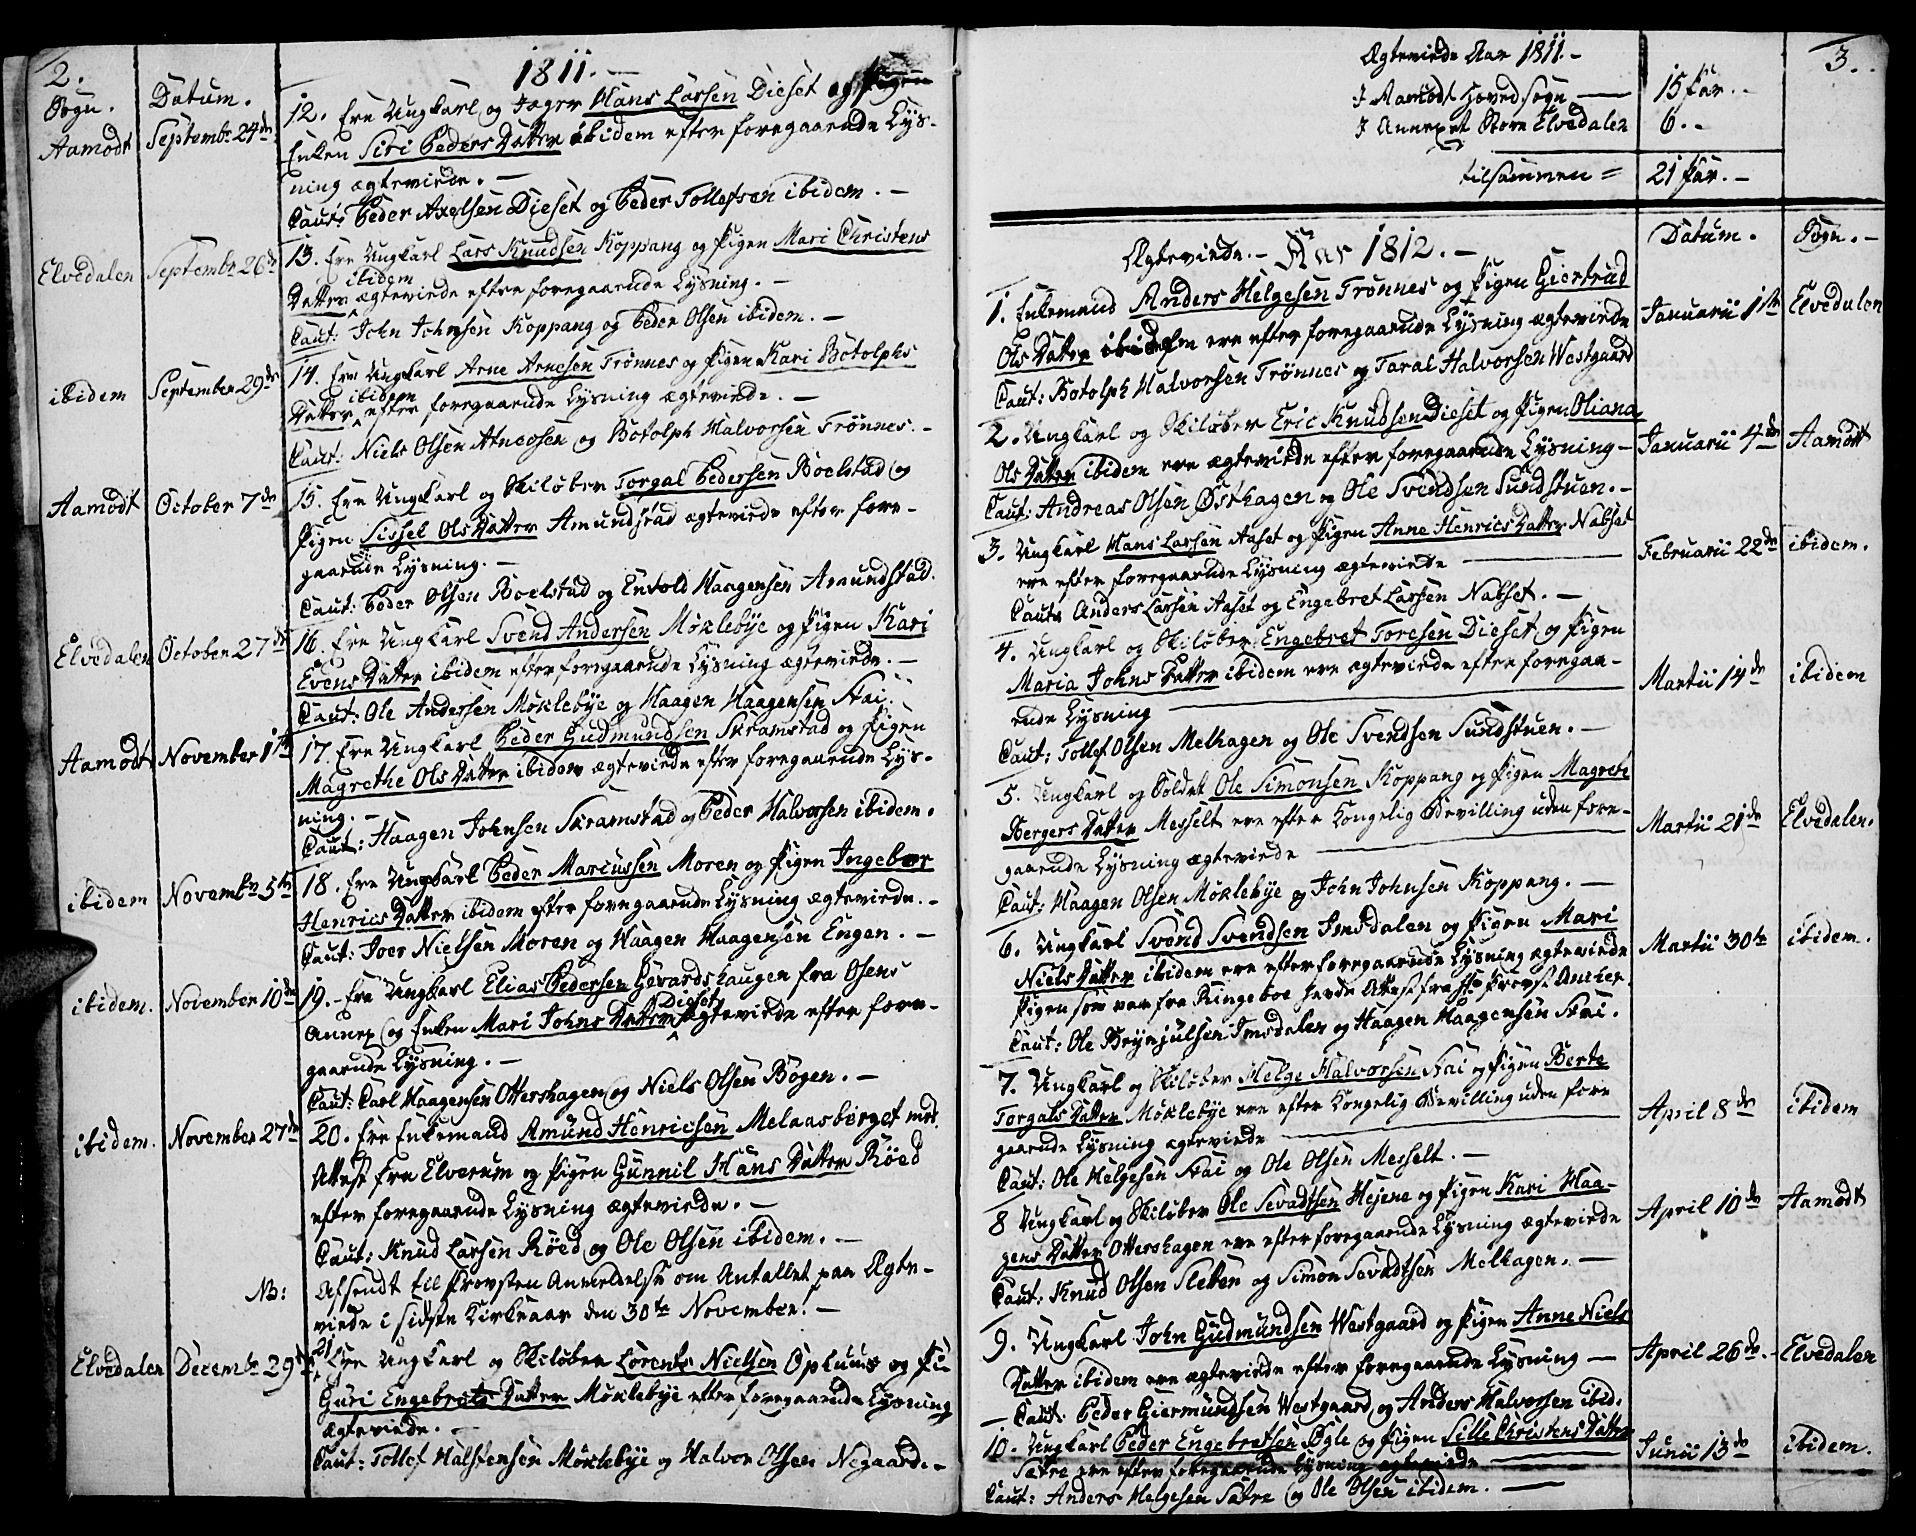 2.
1811.
Sogn. Datum.
Aamodt Septembr 24de
12. Ere Ungkarl og Jager Hans Larsen Dieset og Pigen
Enken Siri Peders Datter ibidem efter foregaaende Lys-
ning ægteviede. -
Caut: Peder Axelsen Dieset og Peder Tollefsen ibidem. -
Elvedalen Septembr 26de
13. Ere Ungkarl Lars Knudsen Koppang og Pigen Mari Christens
Datter ibidem ægteviede efter foregaaende Lysning. -
Caut: John Johnsen Koppang og Peder Olsen ibidem. -
ibidem September 29de
14. Ere Ungkarl Arne Arnesen Trønnes og Pigen Kari Botolphs
Datter ibidem efter foregaaende Lysning ægteviede. -
Caut: Niels Olsen Atneosen og Botolph Halvorsen Trønnes. -
Aamodt October 7de
15. Ere Ungkarl og Skiløber Torgal Pedersen Boelstad og
Pigen Sissel Ols Datter Amundstad ægteviede efter fore-
gaaende Lysning. -
Caut: Peder Olsen Boelstad og Envold Haagensen Amundstad.
Elvedalen October 27de
16. Ere Ungkarl Svend Andersen Möklebÿe og Pigen Kari
Evens Datter ibidem efter foregaaende Lysning ægteviede. -
Caut: Ole Andersen Möklebÿe og Haagen Haagensen Stai.
Aamodt November 1ste
17. Ere Ungkarl Peder Gudmundsen Skramstad og Pigen
Magrethe Ols Datter ibidem ægteviede efter foregaaende Lys-
ning. -
Caut: Haagen Johnsen Skramstad og Peder Halvorsen ibidem.
ibidem Novembr 5te
18. Ere Ungkarl Peder Mariussen Moren og Pigen Ingebor
Henrics Datter ibidem efter foregaaende Lysning ægteviede. -
Caut: Joer Nielsen Moren og Haagen Haagensen Engen. -
ibidem. November 10de
19. - Ere Ungkarl Elias Pedersen Gevardshaugen fra Osens
Annex og Enken Mari Johns Datter Dieset ægteviede efter fore-
gaaende Lysning. -
Caut: Carl Haagensen Ottershagen og Niels Olsen Bögen. -
ibidem. November 27de
20. Ere Enkemand Amund Henricsen Melaasberget med
Attest fra Elverum og Pigen Gunnil Hans Datter Röed
efter foregaaende Lysning ægteviede. -
Caut: Knud Larsen Röed og Ole Olsen ibidem. -
NB: Afsendt til Provsten Anmeldelse om Antallet paa Ægte-
viede i sidste Kirkeaar den 30te November. -
Elvedalen Decembr 29de
21. Ere Ungkarl og Skiløber Lorents Nielsen Ophuus og Pi
Guri Engebrets Datter Möklebÿe efter foregaaende Lysning
ægteviede. -
Caut: Tollef Halstensen Möklebÿe og Halvor Olsen Negaard. -
3.
Ægteviede Aar 1811. -
I Aamodt Hoved Sogn 15 Par. -
I Annexet Store Elvedalen 6. -
tilsammen = 21 Par. -
Ægteviede. - Aar 1812. - Datum. Sogn. -
1. Enkemand Anders Helgesen Trønnes og Pigen Giertrud
Ols Datter ibidem ere efter foregaaende Lysning ægteviede
Caut: Botolph Halvorsen Trønnes og Taral Halvorsen Westgaard
Januarii 1ste Elvedalen
2. Ungkarl og Skiløber Eric Knudsen Dieset og Pigen Oliana
Ols Datter ibidem ere ægteviede efter foregaaende Lysning -
Caut: Andreas Olsen Østhagen og Ole Svendsen Sundstuen. -
Januarii 4de Aamodt
3. Ungkarl Hans Larsen Aaset og Pigen Anne Henrics Datter Nabset
ere efter foregaaende Lysning ægteviede
Caut: Anders Larsen Aaset og Engebret Larsen Nabset. -
Februarii 22de ibidem.
4. Ungkarl og Skiløber Engebret Toresen Dieset og Pigen
Maria Johns Datter ibidem ere ægteviede efter foregaa-
ende Lysning
Caut: Tollef Olsen Melhagen og Ole Svendsen Sundstuen. -
Martii 14de ibidem
5. Ungkarl og Soldat Ole Simonsen Koppang og Pigen Magrete
Bergers Datter Messelt ere efter Kongelig Bevilling uden fore-
gaaende Lysning ægteviede
Caut: Haagen Olsen Möklebÿe og John Johnsen Koppang. -
Martii 21de Elvedalen.
6. Ungkarl Svend Svendsen Imsdalen og Pigen Mari
Niels Datter ibidem ere efter foregaaende Lysning ægteviede
Pigen som var fra Ringeboe havde Attest fra Hr Provst
Caut: Ole Brynjulsen Imsdalen og Haagen Haagensen Stai.
Martii 30te ibidem.
7. Ungkarl og Skiløber Helge Halvorsen Stai og Pigen Berte
Torgals Datter Möklebÿe ere efter Kongelig Bevilling uden fore
gaaende Lysning ægteviede
Caut: Ole Helgesen Stai og Ole Olsen Messelt. -
April 8de ibidem
8 Ungkarl og Skiløber Ole Sevadtsen Hejene og Pigen Kari Haa-
gens Datter Ottershagen ere efter foregaaende Lysning ægteviede
Caut: Knud Olsen Sletten og Simon Sevadtsen Melhagen. -
April 10de Aamodt
9. Ungkarl John Gudmundsen Westgaard og Pigen Anne Niels
Datter ibidem ere ægteviede efter foregaaende Lysning -
Caut: Peder Giermundsen Westgaard og Anders Halvorsen ibid.
April 26de. - Elvedalen
10. Ungkarl Peder Engebretsen Ögle og Pigen Sille Christens Datter
Sætre ere efter foregaaende Lysning ægteviede
Caut: Anders Helgesen Sætre og Ole Olsen ibidem. -
Junii 13de ibidem.